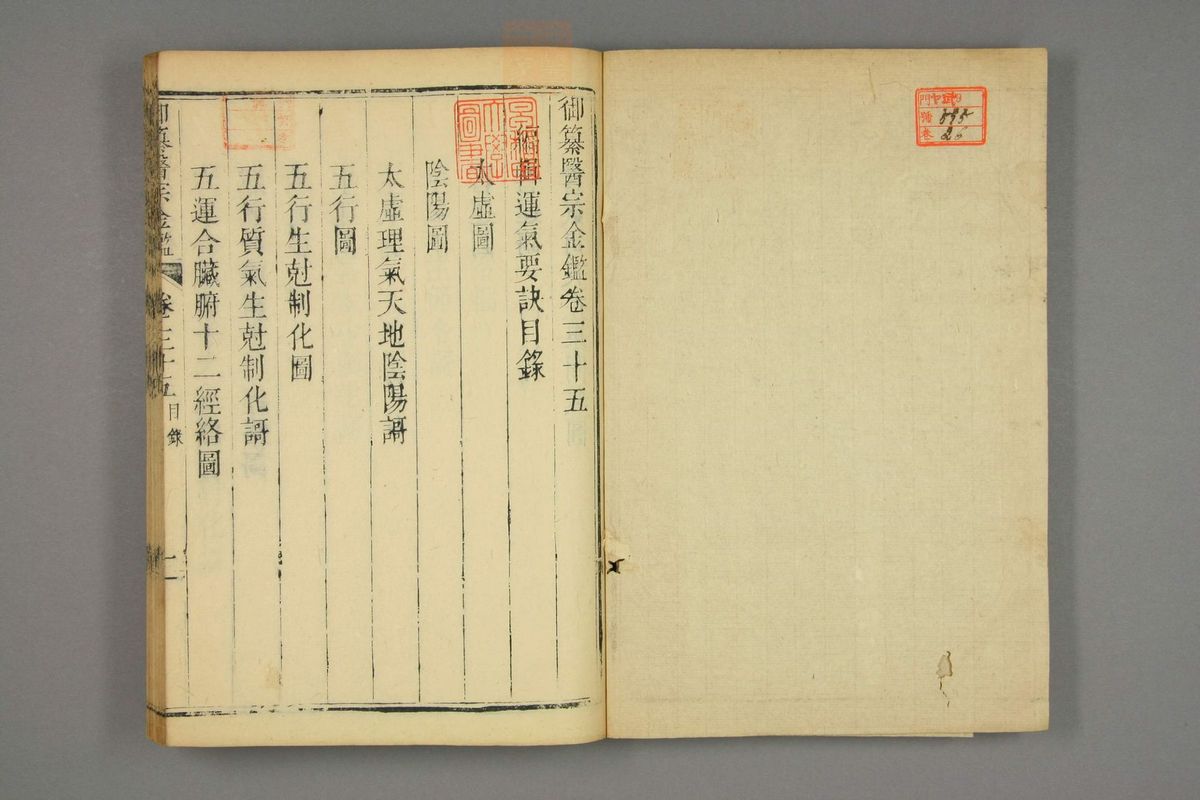 御纂醫宗金鑑卷三十五
編輯運氣要訣目錄
太虛圖
陰陽圖
太虛理氣天地陰陽謌
五行圖
五行生尅制化圖
五行質氣生尅制化謌
五運合臟腑十二經絡圖
御纂醫宗金鑑
卷三十五
目錄
一
895